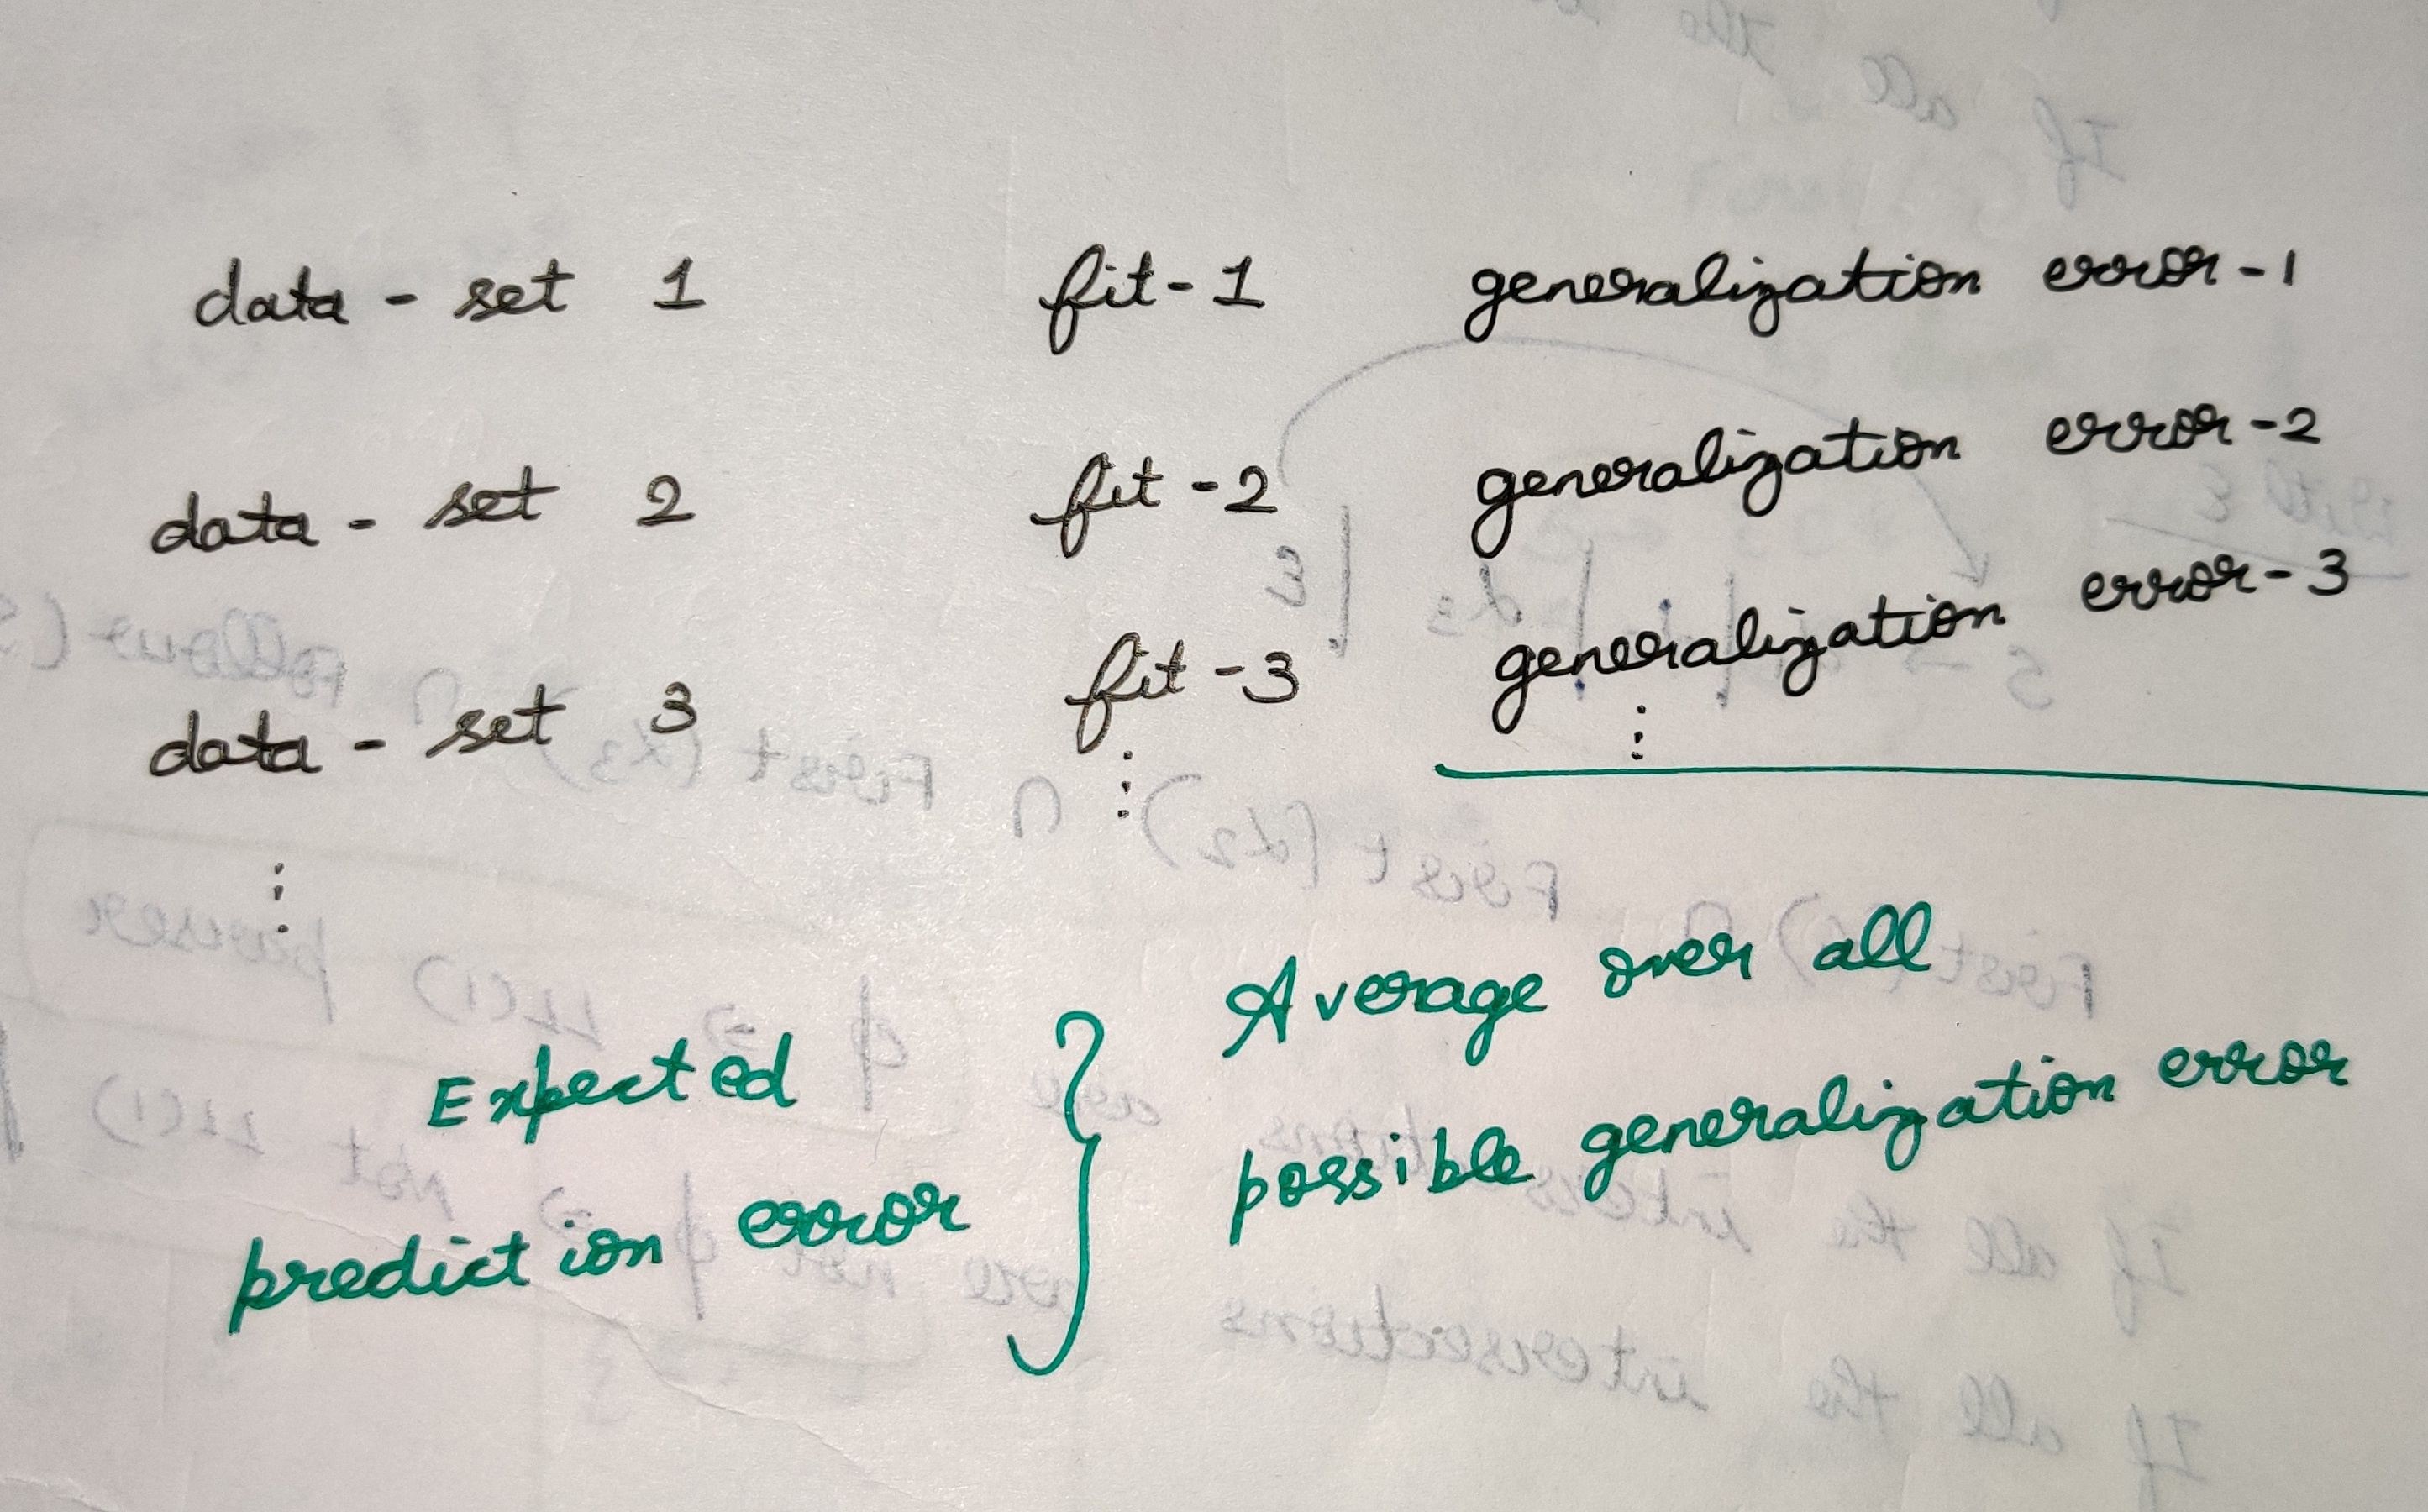 data - set 1 fit - 1 generalization error - 1
data - set 2 fit - 2 generalization error - 2
data - set 3 fit - 3 generalization error - 3
⋮ ⋮ ⋮
Expected
prediction error
} Average over all
possible generalization error